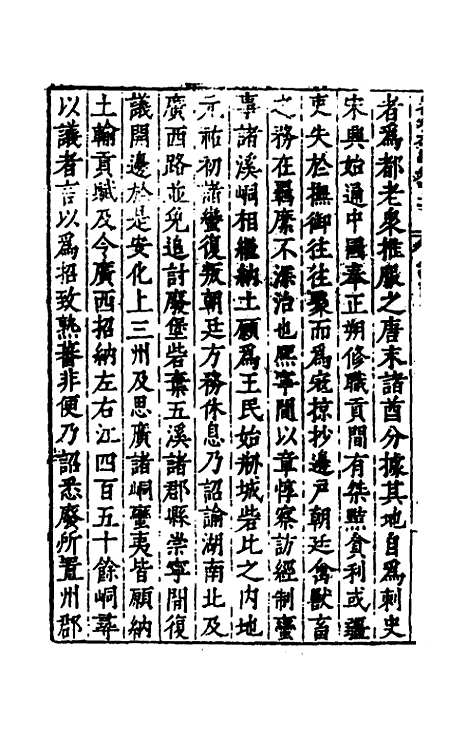 者爲都老衆推服之唐末諸酋分據其地自爲刺史
宋興始通中國奉正朔修職貢間有桀黠貪利或疆
吏失於撫御往往聚而爲寇掠抄邊戸朝廷禽獸畜
之務在羈縻不深治也熙寧間以章惇察訪經制蠻
事諸溪峒相繼納土願爲王民始剏城砦比之内地
元祐初諸蠻復叛朝廷方務休息乃詔諭湖南北及
廣西路並免追討廢堡砦棄五溪諸郡縣崇寧閒復
議開邊於是安化上三州及思廣諸峒蠻夷皆願納
土輸貢賦及令廣西招納左右江四百五十餘峒尋
以議者言以爲招致熟蕃非便乃詔悉廢所置州郡